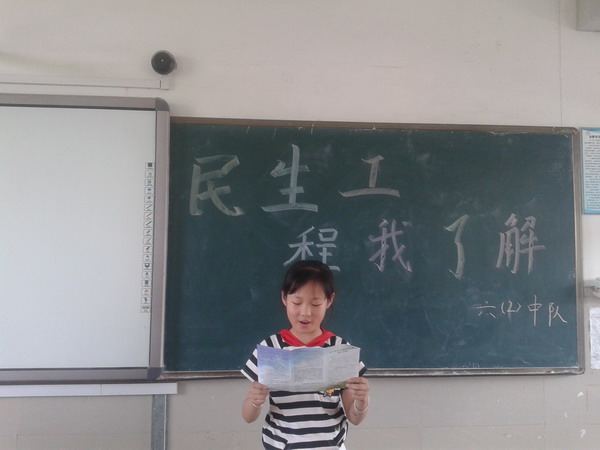 民生工
程我了解
六(2)中队